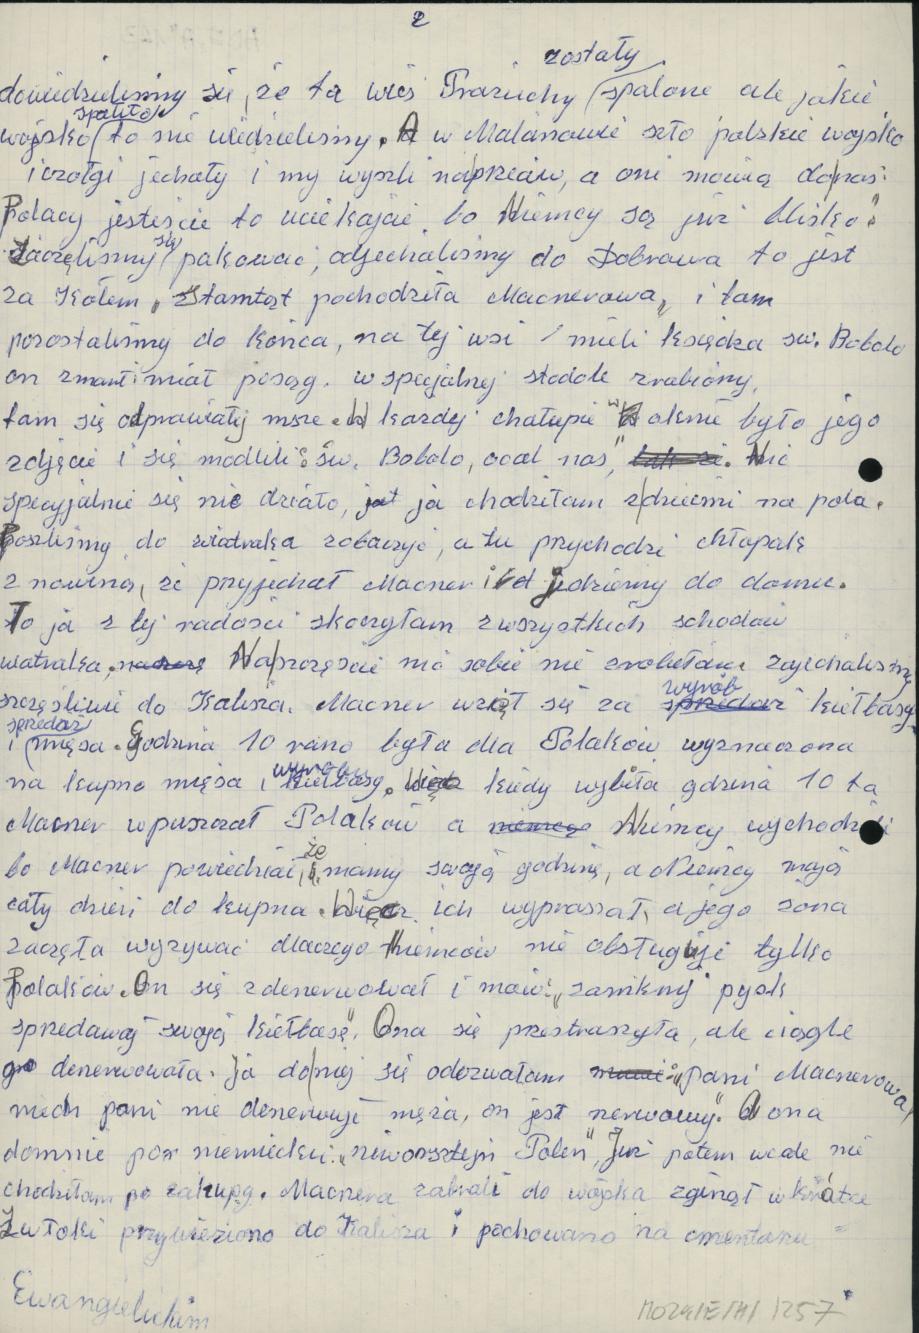 2
zostały
dowiedzieliśmy się, że ta wieś Prażuchy spalone ale jakie
spaliło
wojsko to nie wiedzieliśmy. A w Malanowie szło polskie wojsko
i czołgi jechały i my wyszli naprzeciw, a oni mówią do nas:
Polacy jesteście to uciekajcie bo Niemcy są już blisko".
się
Zaczęliśmy pakować, odjechaliśmy do Dobrowa to jest
za Kołem, Stamtąt pochodziła Macnerowa, i tam
pozostaliśmy do końca, na tej wsi mieli księdza św. Bobolo
on zmarł miał posąg. w specjalnej stodole zrobiony,
tam się odprawiały msze. W każdej chałupie w oknie było jego
zdjęcie i się modlili: św. Bobolo, ocal nas". Nic
specyjalnie się nie działo, ja chodziłam z dziećmi na pola.
Poszliśmy do wiatraka zobaczyć, a tu przychodzi chłopak
z nowiną, że przyjechał Macner i jedziemy do domu.
To ja z tej radości skoczyłam z wszystkich schodów
wiatraka, Naprzczęście nic sobie nie zrobiłam zajechaliśmy
szczęśliwie do Kalisza. Macner wziął się za sprzedaż kiełbasy
wyrób
sprzedaż
i mięsa. Godzina 10 rano była dla Polaków wyznaczona
wyrobów
na kupno mięsa i kiełbasy. kiedy wybiła godzina 10 ta
Macner wpuszczał Polaków a niemcy Niemcy wychodzili
że
bo Macner powiedział, mamy swoją godzinę, a Niemcy mają
cały dzień do kupna. Więc ich wypraszał, a jego żona
zaczęła wyzywać dlaczego Niemców nie obsługuje tylko
Polaków. On się zdenerwował i mówi: "zamknij pysk
sprzedawaj swoją kiełbasę". Ona się przestraszyła, ale ciągle
go denerwowała. Ja do niej się odezwałam: "Pani Macnerowa,
niech pani nie denerwuje męża, on jest nerwowy". A ona
domnie po niemiecku: Polen", Już potem wcale nie
chodziłam po zakupy. Macnera zabrali do wojska zginął w krótce
Zwłoki przywieziono do Kalisza i pochowano na cmentarzu =
Ewangielickim
1257